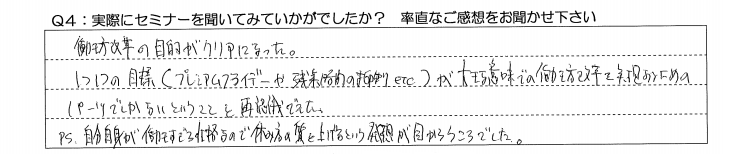 Q4：実際にセミナーを聞いてみていかがでしたか？　率直なご感想をお聞かせ下さい
働き方改革の目的がクリアになった。
1つ1つの目標（プレミアムフライデーや残業時間の抑制etc）が大きな意味での働き方改革を実現するための
1パーツでしかないということを再認識できた。
PS.自分自身が働きすぎる性格なので休み方の質を上げるという発想が目からうろこでした。